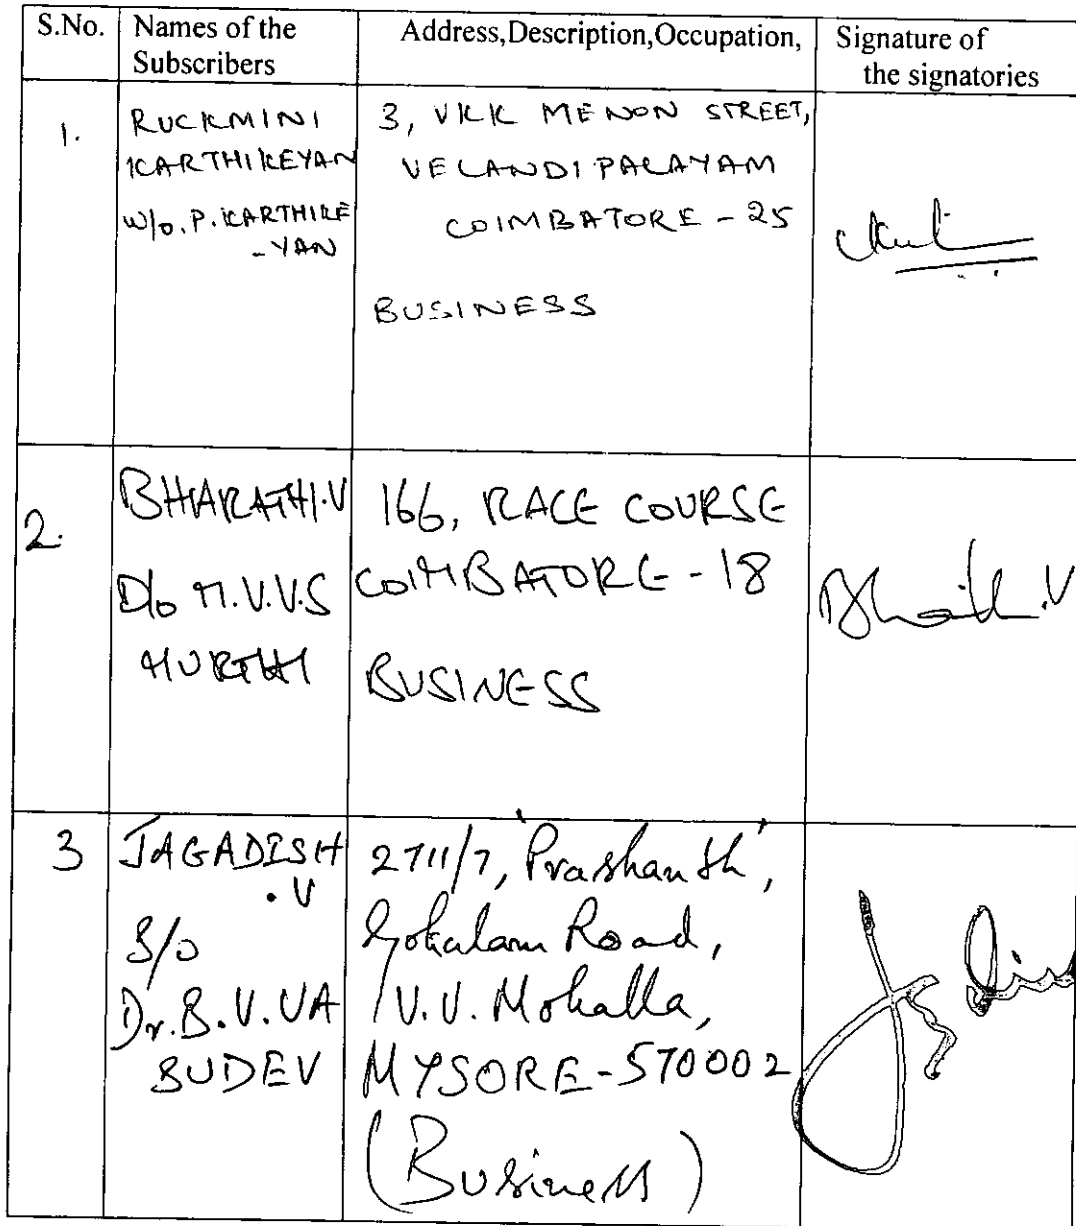 S.No. Names of the Subscribers Address,Description,Occupation, Signature of the signatories
1.
RUCKMINI
KARTHIKEYAN
W/o. P. KARTHIKE
-YAN
3, VKK MENON STREET,
VELANDIPALAYAM
COIMBATORE - 25
BUSINESS
2.
BHARATHI.V
D/o M.V.V.S
MURTHI
166, RACE COURSE
COIMBATORE - 18
BUSINESS
Bharathi.V
3
JAGADISH
.V
S/o
Dr. B. V. VA
SUDEV
2711/7, 'Prashanth',
Gokalam Road,
V.V. Mohalla,
MYSORE-570002
(Business)